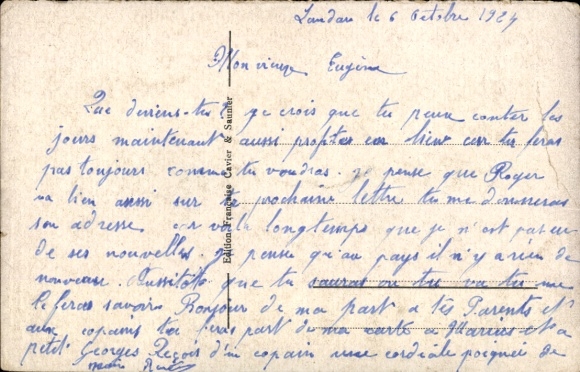 Landau le 6 Octobre 1924
Mon vieux Eugène
Que deviens-tu je crois que tu peux conter les
jours maintenant aussi profites en bien car tu feras
pas toujours comme tu voudras. je pense que Roger
va bien aussi sur ta prochaine lettre tu me donneras
son adresse car voila longtemps que je n'est pas eu
de ses nouvelles. je pense qu'au pays il n'y a rien de
nouveau. Aussitôt que tu sauras ou tu vas tu me
le feras savoir. Bonjour de ma part a tes Parents et
aux copains tu feras part de ma carte a Marius et a
petit Georges Reçois d'un copain une cordiale poignée de
main
Edition Française Cavier & Saunier